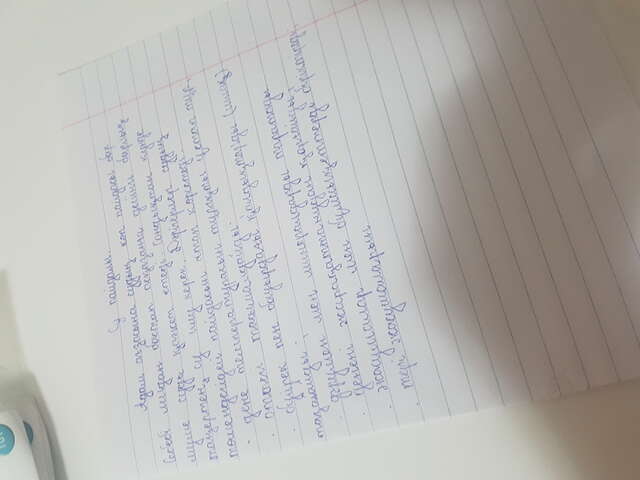 Су пайдалы.
Адам ағзасына судың көп пайдасы бар
Себебі мидан бастап асқазанға дейін барлық
мүше суды қажет етеді. Сондықтан күнде
таңертең су ішу керек. Дәрігерлер судың
төмендегідей пайдасын атап көрсетеді.
· дене температурасын тұрақты ұстап тұр
· оттегі тасымалдайды.
· бүйрек пен бауырдағы қылдықтарды (шлак)
тазалайды;
· дәрумен мен минералдарды таратады
· денені жарақаттанудан қорғайды;
· жасушалар мен бұлшықеттерді біріктіреді.
· тері жасушаларын